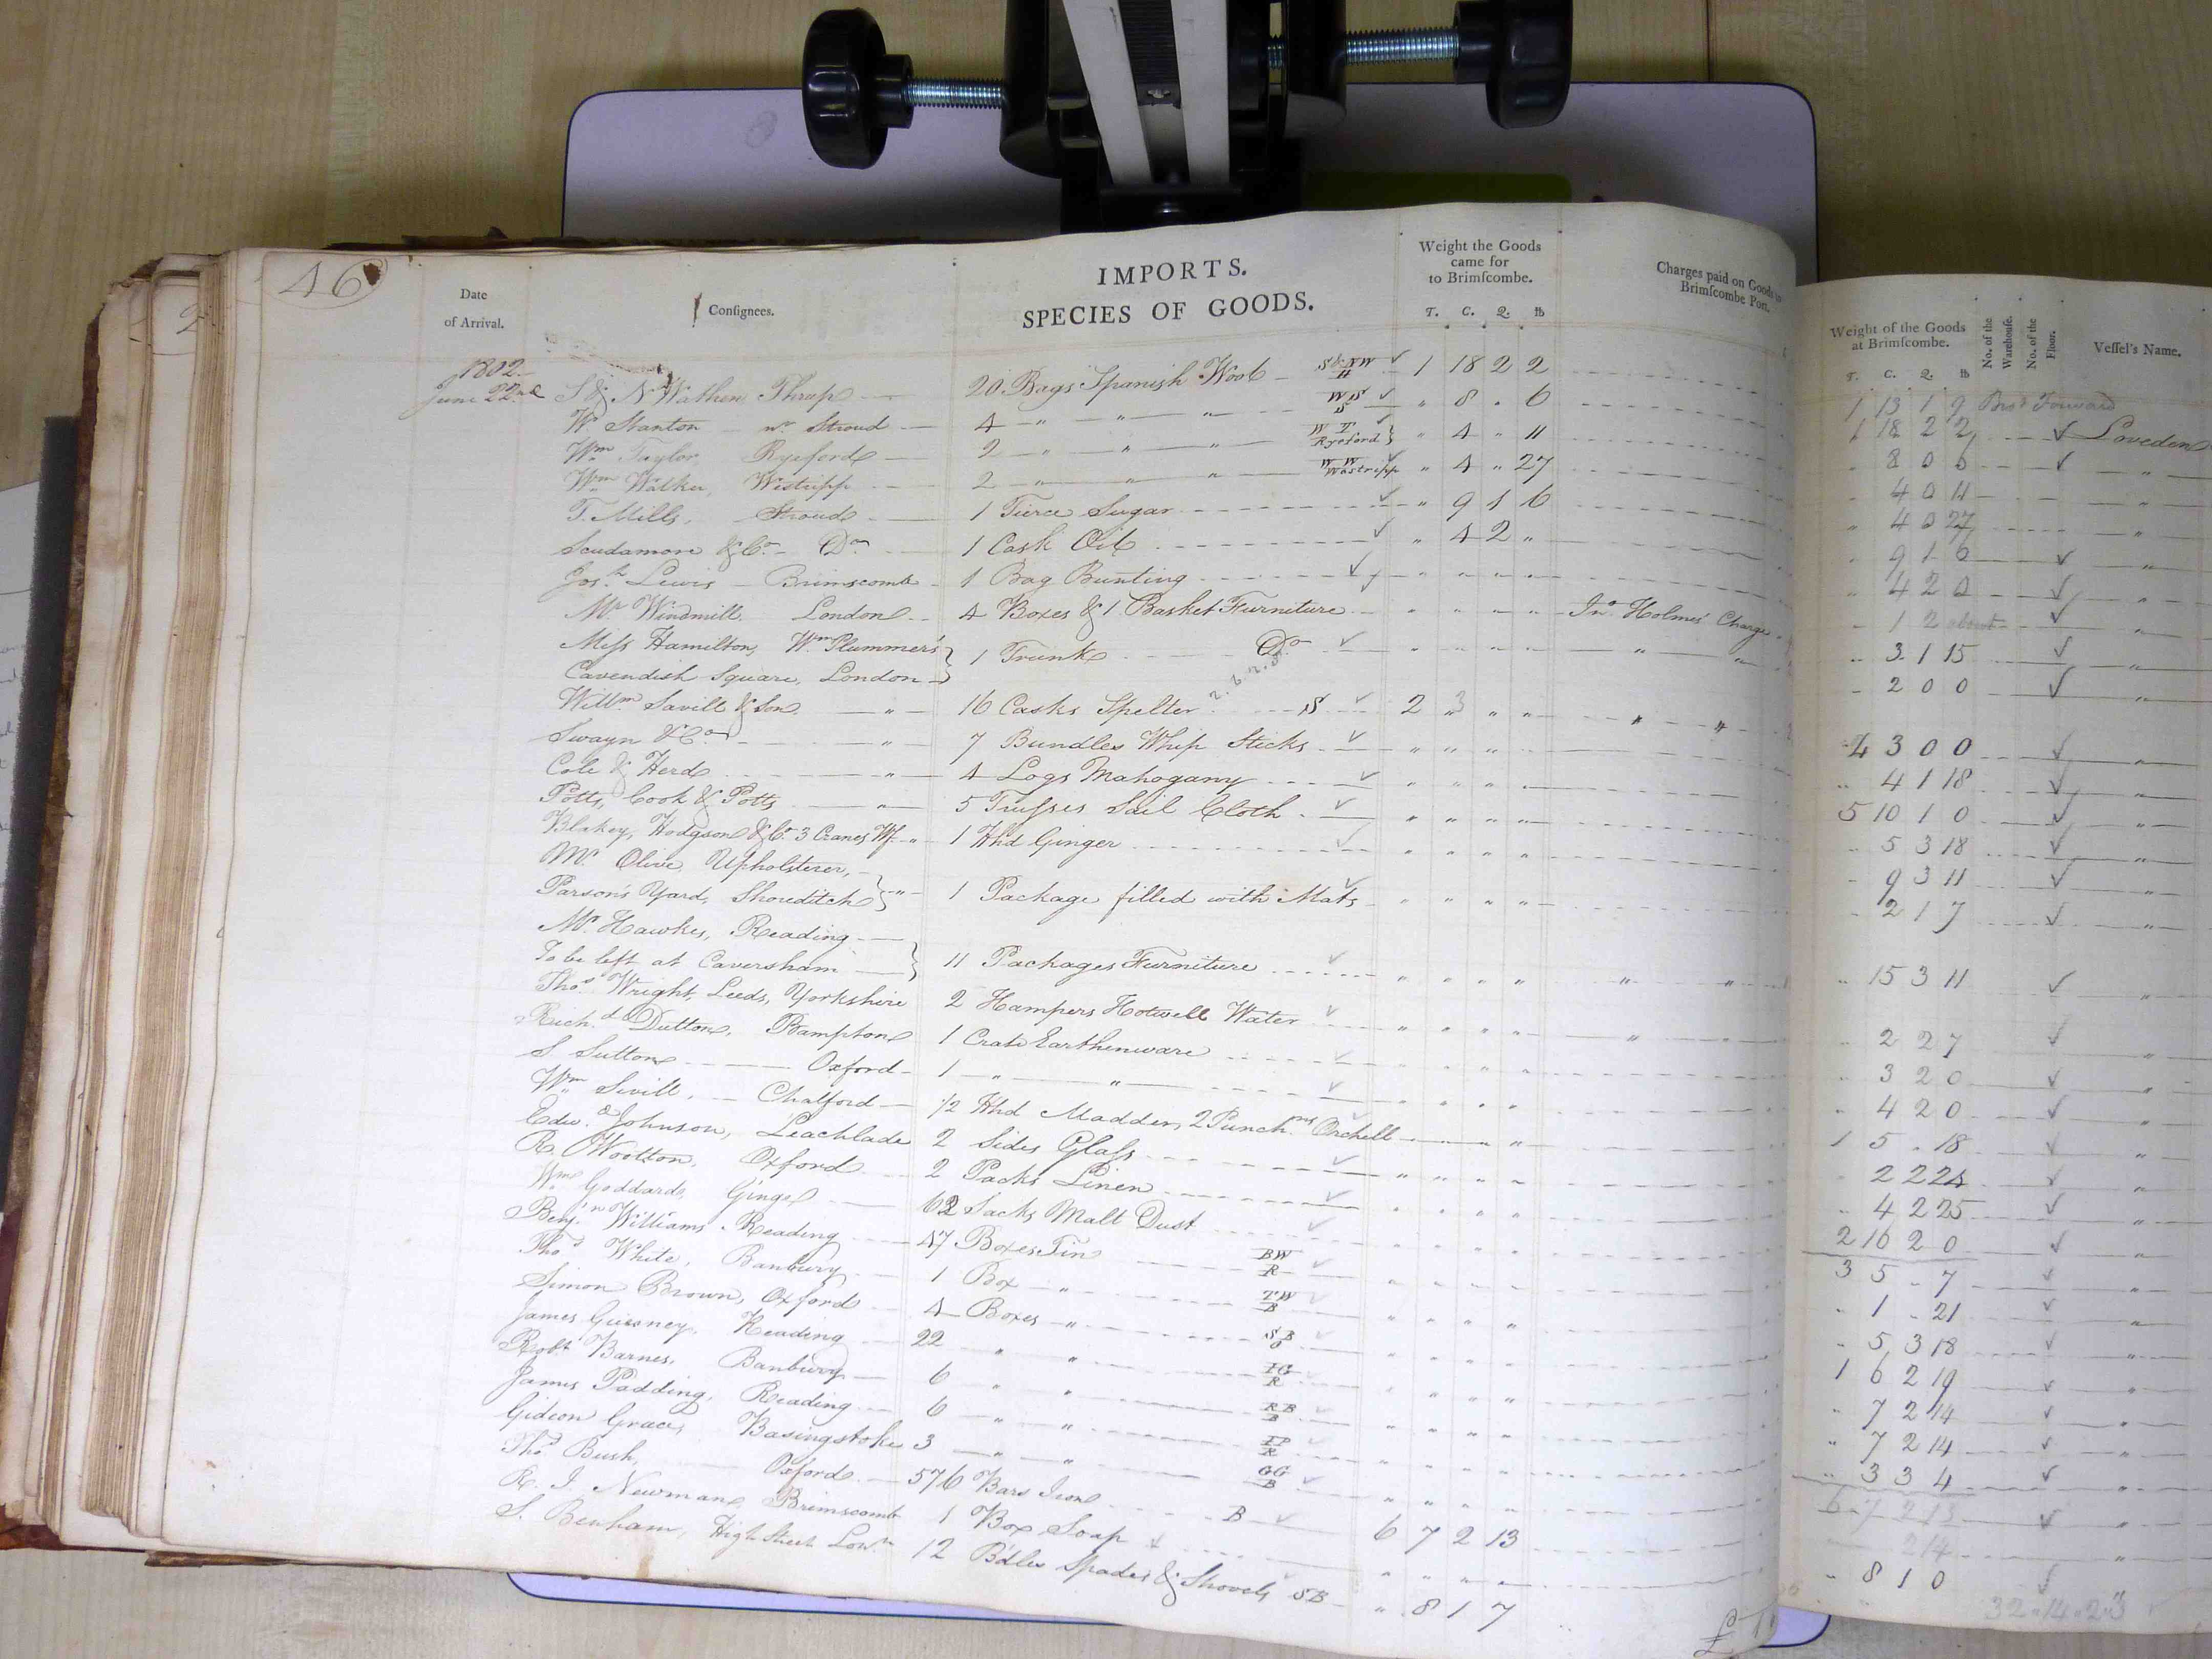 46
IMPORTS.
Date of Arrival. Consignees. SPECIES OF GOODS. Weight the Goods came for to Brimscombe. T. C. Q. lb Charges paid on Goods to Brimscombe Port. Weight of the Goods at Brimscombe. T. C. Q. lb No. of the Warehouse. No. of the Floor. Vessel's Name.
1 13 1 9 Bro.t Forward
1802
June 22nd S & N Wathen Thrup 20 Bags Spanish Wool S&NW H 1 18 2 2 1 18 2 2 Loveden
W. Stanton nr Stroud 4 " " WS S " 8 . 6 8 0 6 "
Wm Taylor Ryeford 2 " " WT Ryeford } " 4 " 11 4 0 11 "
Wm Walker, Westripp 2 " " WW Westripp " 4 " 27 4 0 27 "
T. Mills, Stroud 1 Tierce Sugar " 9 1 6 9 1 6 "
Scudamore & Co. Do 1 Cask Oil " 4 2 " 4 2 0 "
Josh Lewis Brimscomb 1 Bag Bunting " " " " 1 2 about "
Mr Windmill London 4 Boxes & 1 Basket Furniture " " " " Jno Holmes' Charge 3 1 15 "
Miss Hamilton, Wm Plummer's
Cavendish Square, London } 1 Trunk Do " " " " " " 2 0 0 "
Willm Savill & Son " 16 Casks Spelter S 2 3 " " " " 2 3 0 0 "
Swayn & Co " 7 Bundles Whip Sticks " " " 4 1 18 "
Cole & Herd " 4 Logs Mahogany " " " 5 10 1 0 "
Potts, Cook & Potts " 5 Trusses Sail Cloth " " " " 5 3 18 "
Blakey, Hodgson & Co 3 Cranes Wf. " 1 Hhd Ginger " " " " 9 3 11 "
Mr Olive, Upholsterer,
Parson's Yard, Shoreditch } " 1 Package filled with Mats " " " " 2 1 7 "
Mr. Hawkes, Reading
To be left at Caversham } 11 Packages Furniture " " " " " " 15 3 11 "
Thos Wright, Leeds, Yorkshire 2 Hampers Hotwell Water " " " " " 2 2 7 "
Richd Dutton, Bampton 1 Crate Earthenware " " " 3 2 0 "
S Sutton Oxford 1 " " " " " " 4 2 0 "
Wm Sevill, Chalford 1/2 Hhd Madder, 2 Punchns Orchell " " 1 5 . 18 "
Edwd Johnson, Leachlade 2 Sides Glass " " " " 2 2 24 "
R. Wootton, Oxford 2 Packs Linen " " " 4 2 25 "
Wm Goddard, Ginge 62 Sacks Malt Dust " " " " 2 16 2 0 "
Benjn Williams. Reading 47 Boxes Tin BW R " " " " 3 5 - 7 "
Thos White, Banbury 1 Box " TW B " " " " 1 - 21 "
Simon Brown, Oxford 4 Boxes " SB O " " " " 5 3 18 "
James Reading 22 " " IG R " " " " 1 6 2 19 "
Robt Barnes, Banbury 6 " " RB B " " " " 7 2 14 "
James Padding, Reading 6 " " IP R " " " " 7 2 14 "
Gideon Grace, Basingstoke 3 " " GG B " " " " 3 3 4 "
Thos Bush, Oxford 576 Bars Iron B 6 7 2 13 6 7 2 13 "
R. I. Newman, Brimscomb 1 Box Soap " " " " 2 14 "
S. Benham, High Street Lonn 12 Bdles Spades & Shovels SB " 8 1 7 8 1 0 "
£ 32 . 14 . 2 . 3